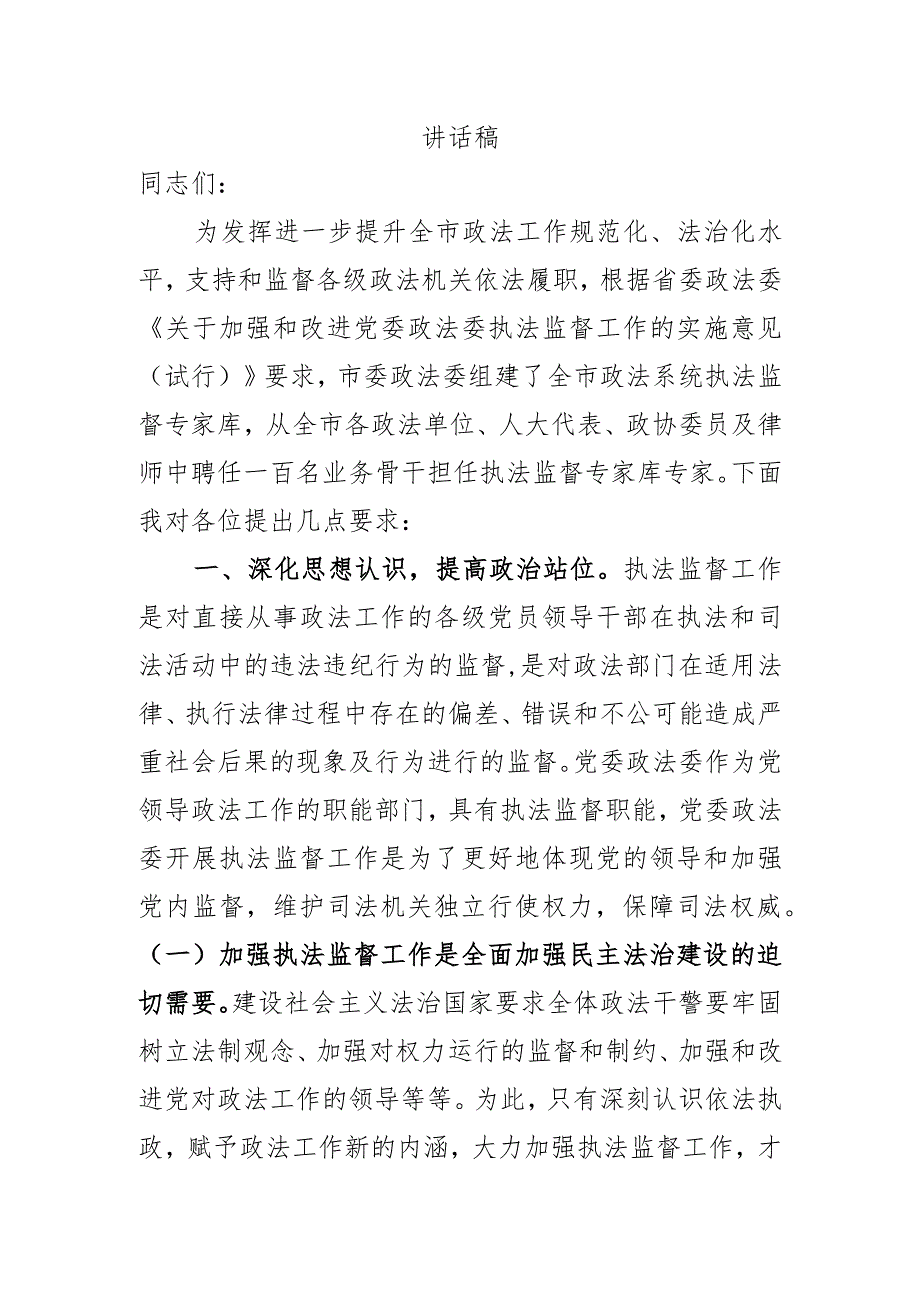 讲话稿
同志们：
为发挥进一步提升全市政法工作规范化、法治化水
平，支持和监督各级政法机关依法履职，根据省委政法委
《关于加强和改进党委政法委执法监督工作的实施意见
（试行）》要求，市委政法委组建了全市政法系统执法监
督专家库，从全市各政法单位、人大代表、政协委员及律
师中聘任一百名业务骨干担任执法监督专家库专家。下面
我对各位提出几点要求：
一、深化思想认识，提高政治站位。执法监督工作
是对直接从事政法工作的各级党员领导干部在执法和司
法活动中的违法违纪行为的监督,是对政法部门在适用法
律、执行法律过程中存在的偏差、错误和不公可能造成严
重社会后果的现象及行为进行的监督。党委政法委作为党
领导政法工作的职能部门，具有执法监督职能，党委政法
委开展执法监督工作是为了更好地体现党的领导和加强
党内监督，维护司法机关独立行使权力，保障司法权威。
（一）加强执法监督工作是全面加强民主法治建设的迫
切需要。建设社会主义法治国家要求全体政法干警要牢固
树立法制观念、加强对权力运行的监督和制约、加强和改
进党对政法工作的领导等等。为此，只有深刻认识依法执
政，赋予政法工作新的内涵，大力加强执法监督工作，才